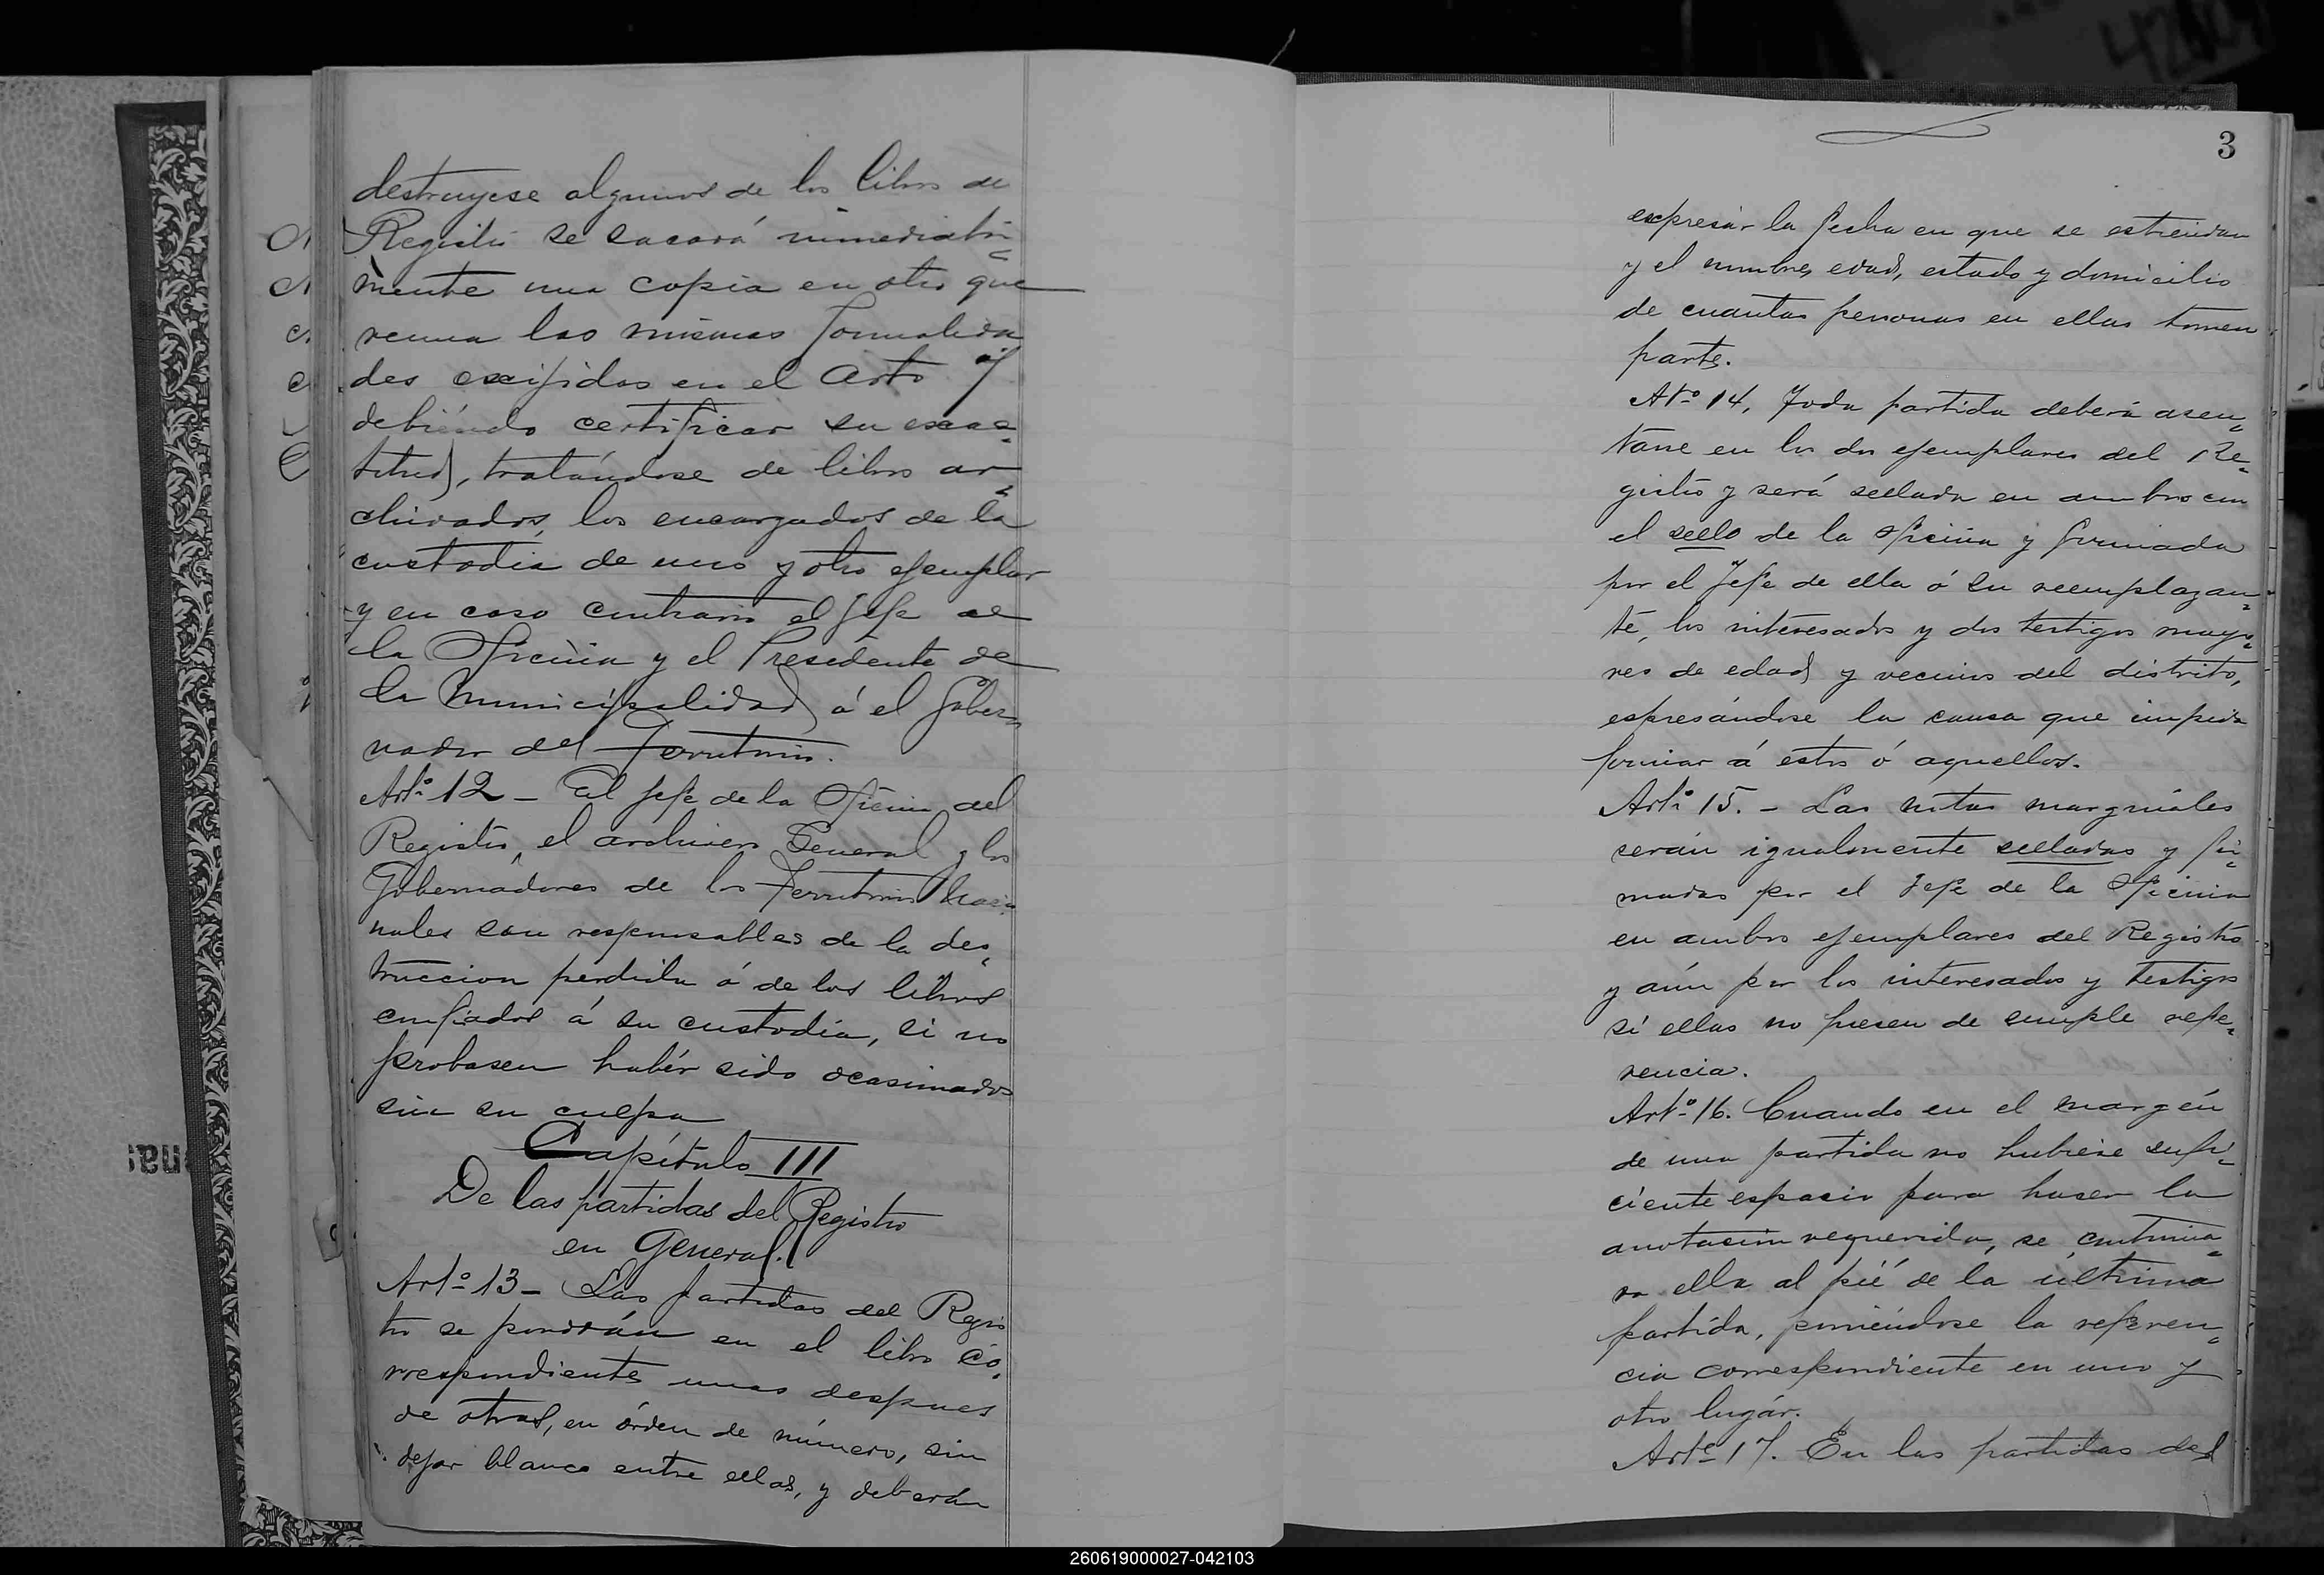 destruyese algunos de los libros de
Registro se sacará inmediata-
mente una copia en otro que
reuna las mismas formalida
des exijidas en el Arto 7
debiéndo certificar su exac-
titud, tratándose de libros ar-
chivados, los encargados de la
custodia de uno y otro ejemplar
y en caso contrario el Jefe de
la Oficina y el Presidente de
la Municipalidad ó el Gober-
nador del Territorio.
Arto 12 - El Jefe de la Oficina del
Registro, el archivero General y los
Gobernadores de los Territorios Nacio
nales son responsables de la des-
truccion perdida ó de los libros
confiados á su custodia, si no
probasen habér sido ocasionados
sin su culpa
Capítulo III
De las partidas del Registro
en General.
Arto 13 - Las partidas del Regis
tro se pondrán en el libro co-
rrespondiente unas despues
de otras, en órden de número, sin
dejar blanco entre ellas, y deberán
3
expresar la fecha en que se estiendan
y el nombre, edad, estado y domicilio
de cuantas personas en ellas tomen
parte.
Arto 14. Toda partida deberá asen-
tarse en los dos ejemplares del Re-
gistro y será sellada en ambos con
el sello de la oficina y firmada
por el Jefe de ella ó su reemplazan-
te, los interesados y dos testigos mayo-
res de edad y vecinos del distrito,
espresándose la causa que impida
firmar á estos ó aquellos.
Arto 15. - Las notas marginales
serán igualmente selladas y fir-
madas por el Jefe de la Oficina
en ambos ejemplares del Registro
y aún por los interesados y testigos
si ellas no fuesen de simple refe-
rencia.
Arto 16. Cuando en el margén
de una partida no hubiese sufi-
ciente espacio para haser la
anotacion requerida, se continua-
ra ella al pié de la ultima
partida, poniéndose la referen-
cia correspondiente en uno y
otro lugár.
Arto 17. En las partidas del
260619000027-042103